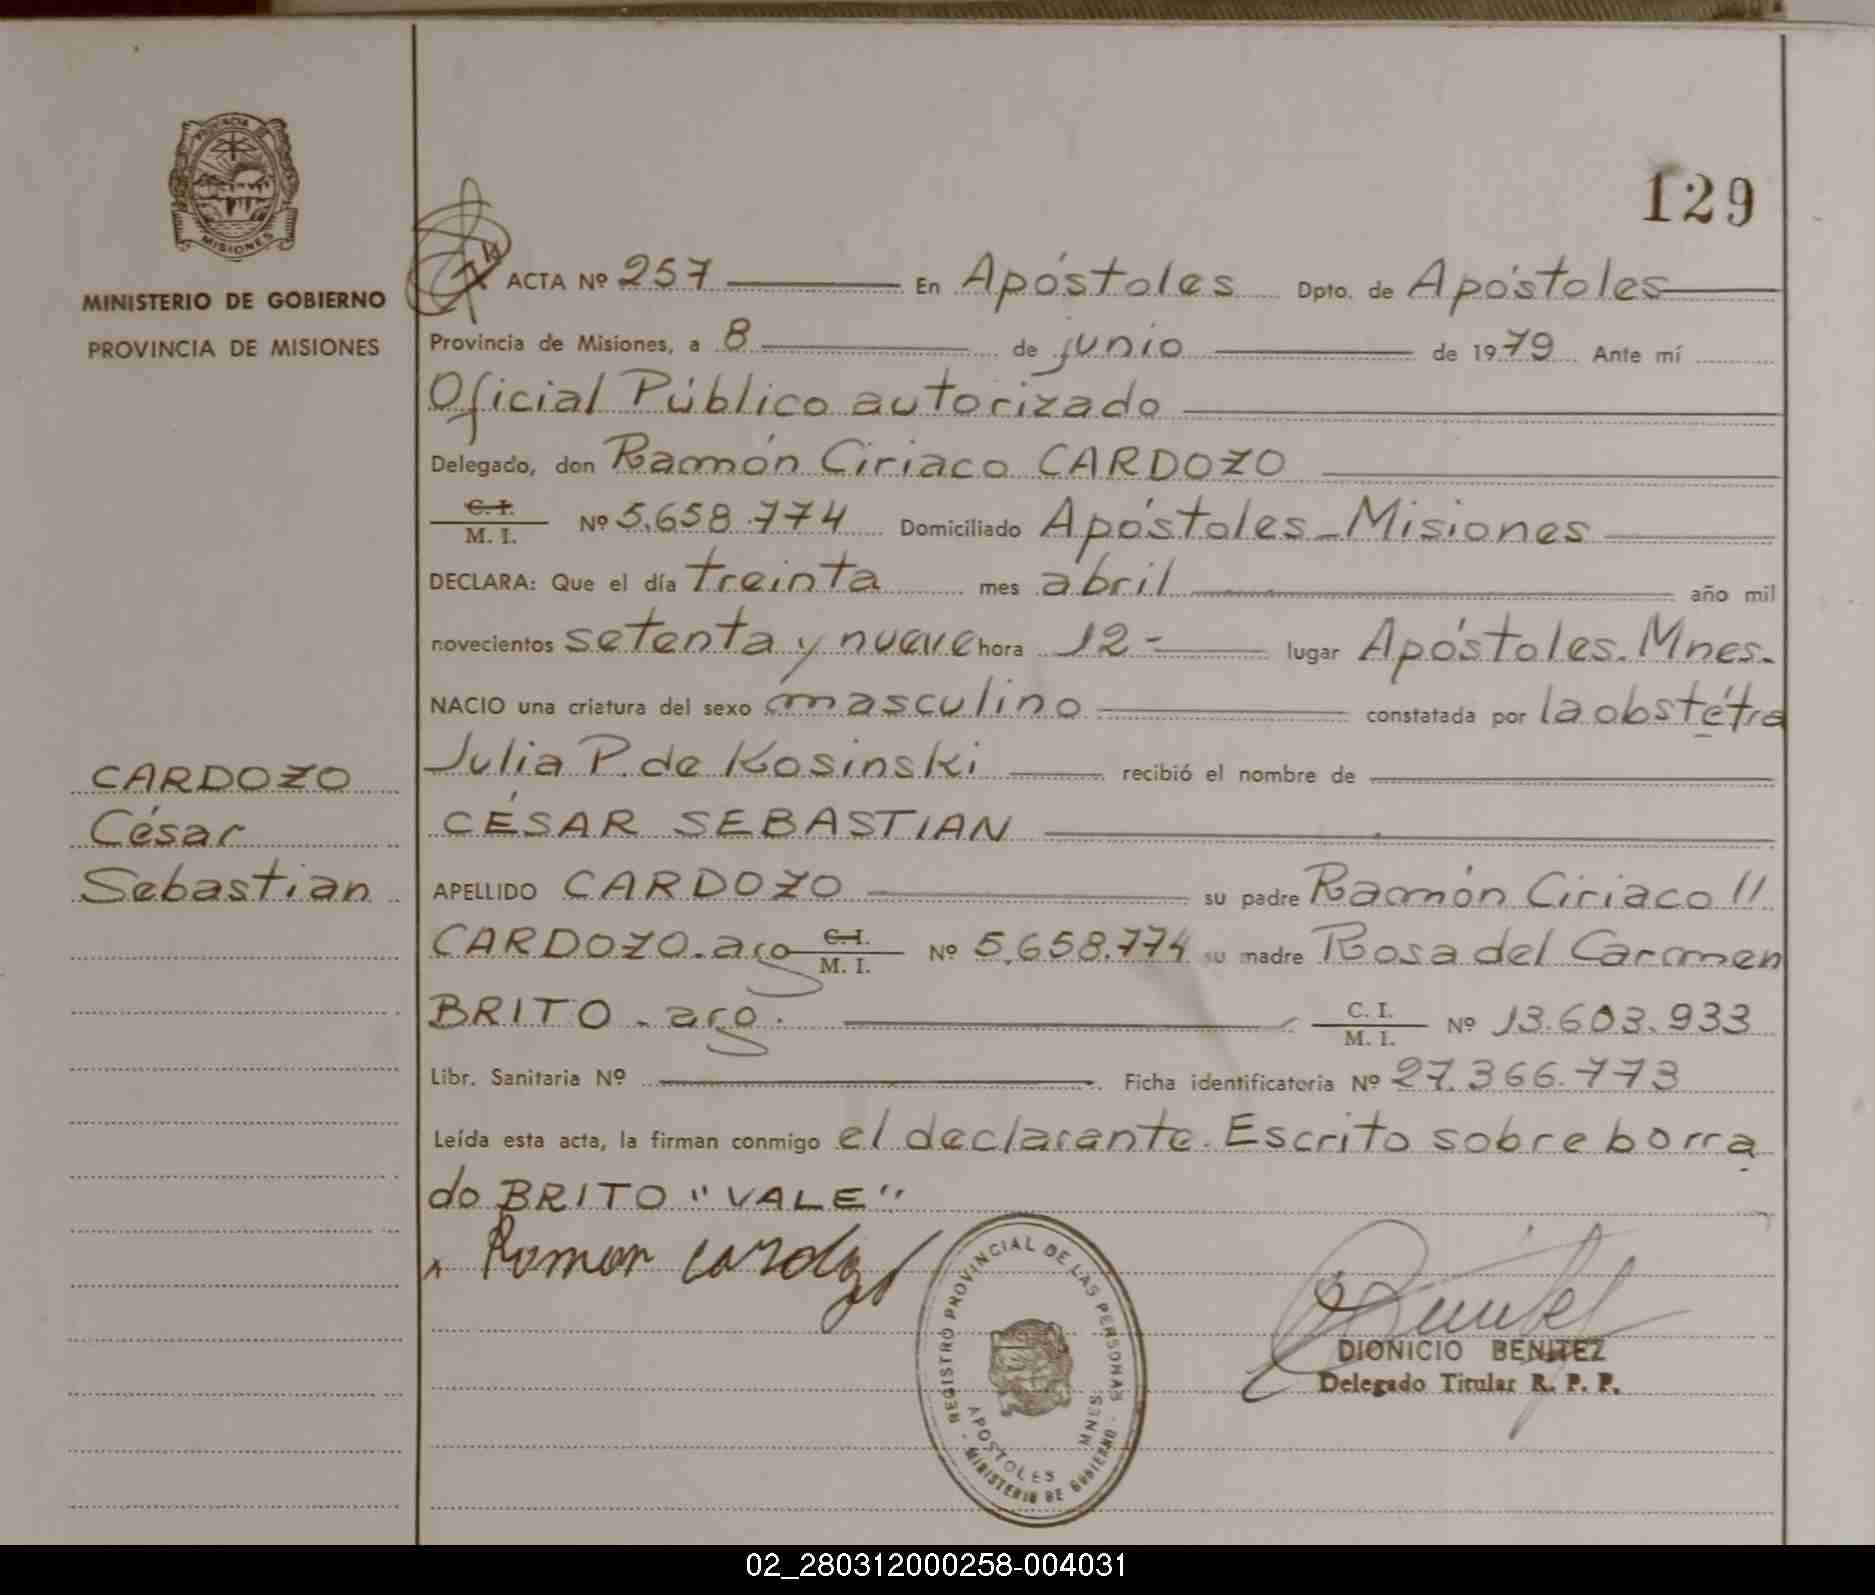 PROVINCIA DE
MISIONES
MINISTERIO DE GOBIERNO
PROVINCIA DE MISIONES
CARDOZO
César
Sebastian
129
ACTA Nº 257 En Apóstoles Dpto. de Apóstoles
Provincia de Misiones, a 8 de junio de 1979 Ante mí
Oficial Público autorizado
Delegado, don Ramón Ciriaco CARDOZO
C. I.
M. I. Nº 5.658.774 Domiciliado Apóstoles - Misiones
DECLARA: Que el día treinta mes abril año mil
novecientos setenta y nueve hora 12 - lugar Apóstoles. Mnes.
NACIO una criatura del sexo masculino constatada por la obstétra
Julia P. de Kosinski recibió el nombre de
CÉSAR SEBASTIAN
APELLIDO CARDOZO su padre Ramón Ciriaco //
CARDOZO. arg C. I. M. I. Nº 5.658.774 su madre Rosa del Carmen
BRITO - arg. C. I. M. I. Nº 13.603.933
Libr. Sanitaria Nº Ficha identificatoria Nº 27.366.773
Leída esta acta, la firman conmigo el declarante. Escrito sobre borra
do BRITO "VALE"
Ramon Cardozo
REGISTRO PROVINCIAL DE LAS PERSONAS
APOSTOLES MNES
- MINISTERIO DE GOBIERNO -
DIONICIO BENITEZ
Delegado Titular R. P. P.
02_280312000258-004031